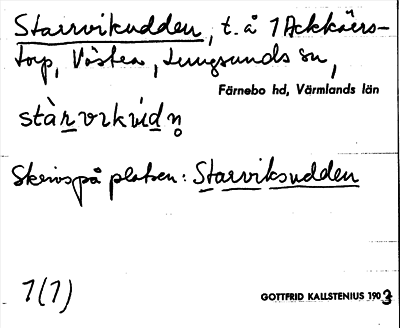 Starrvikudden, t. å 1 Ackkärs-
torp, Västra, Lungsunds sn,
Färnebo hd, Värmlands län
stàrvikùdn̥
Skrivs på platsen: Starviksudden
1(1)
GOTTFRID KALLSTENIUS 1903